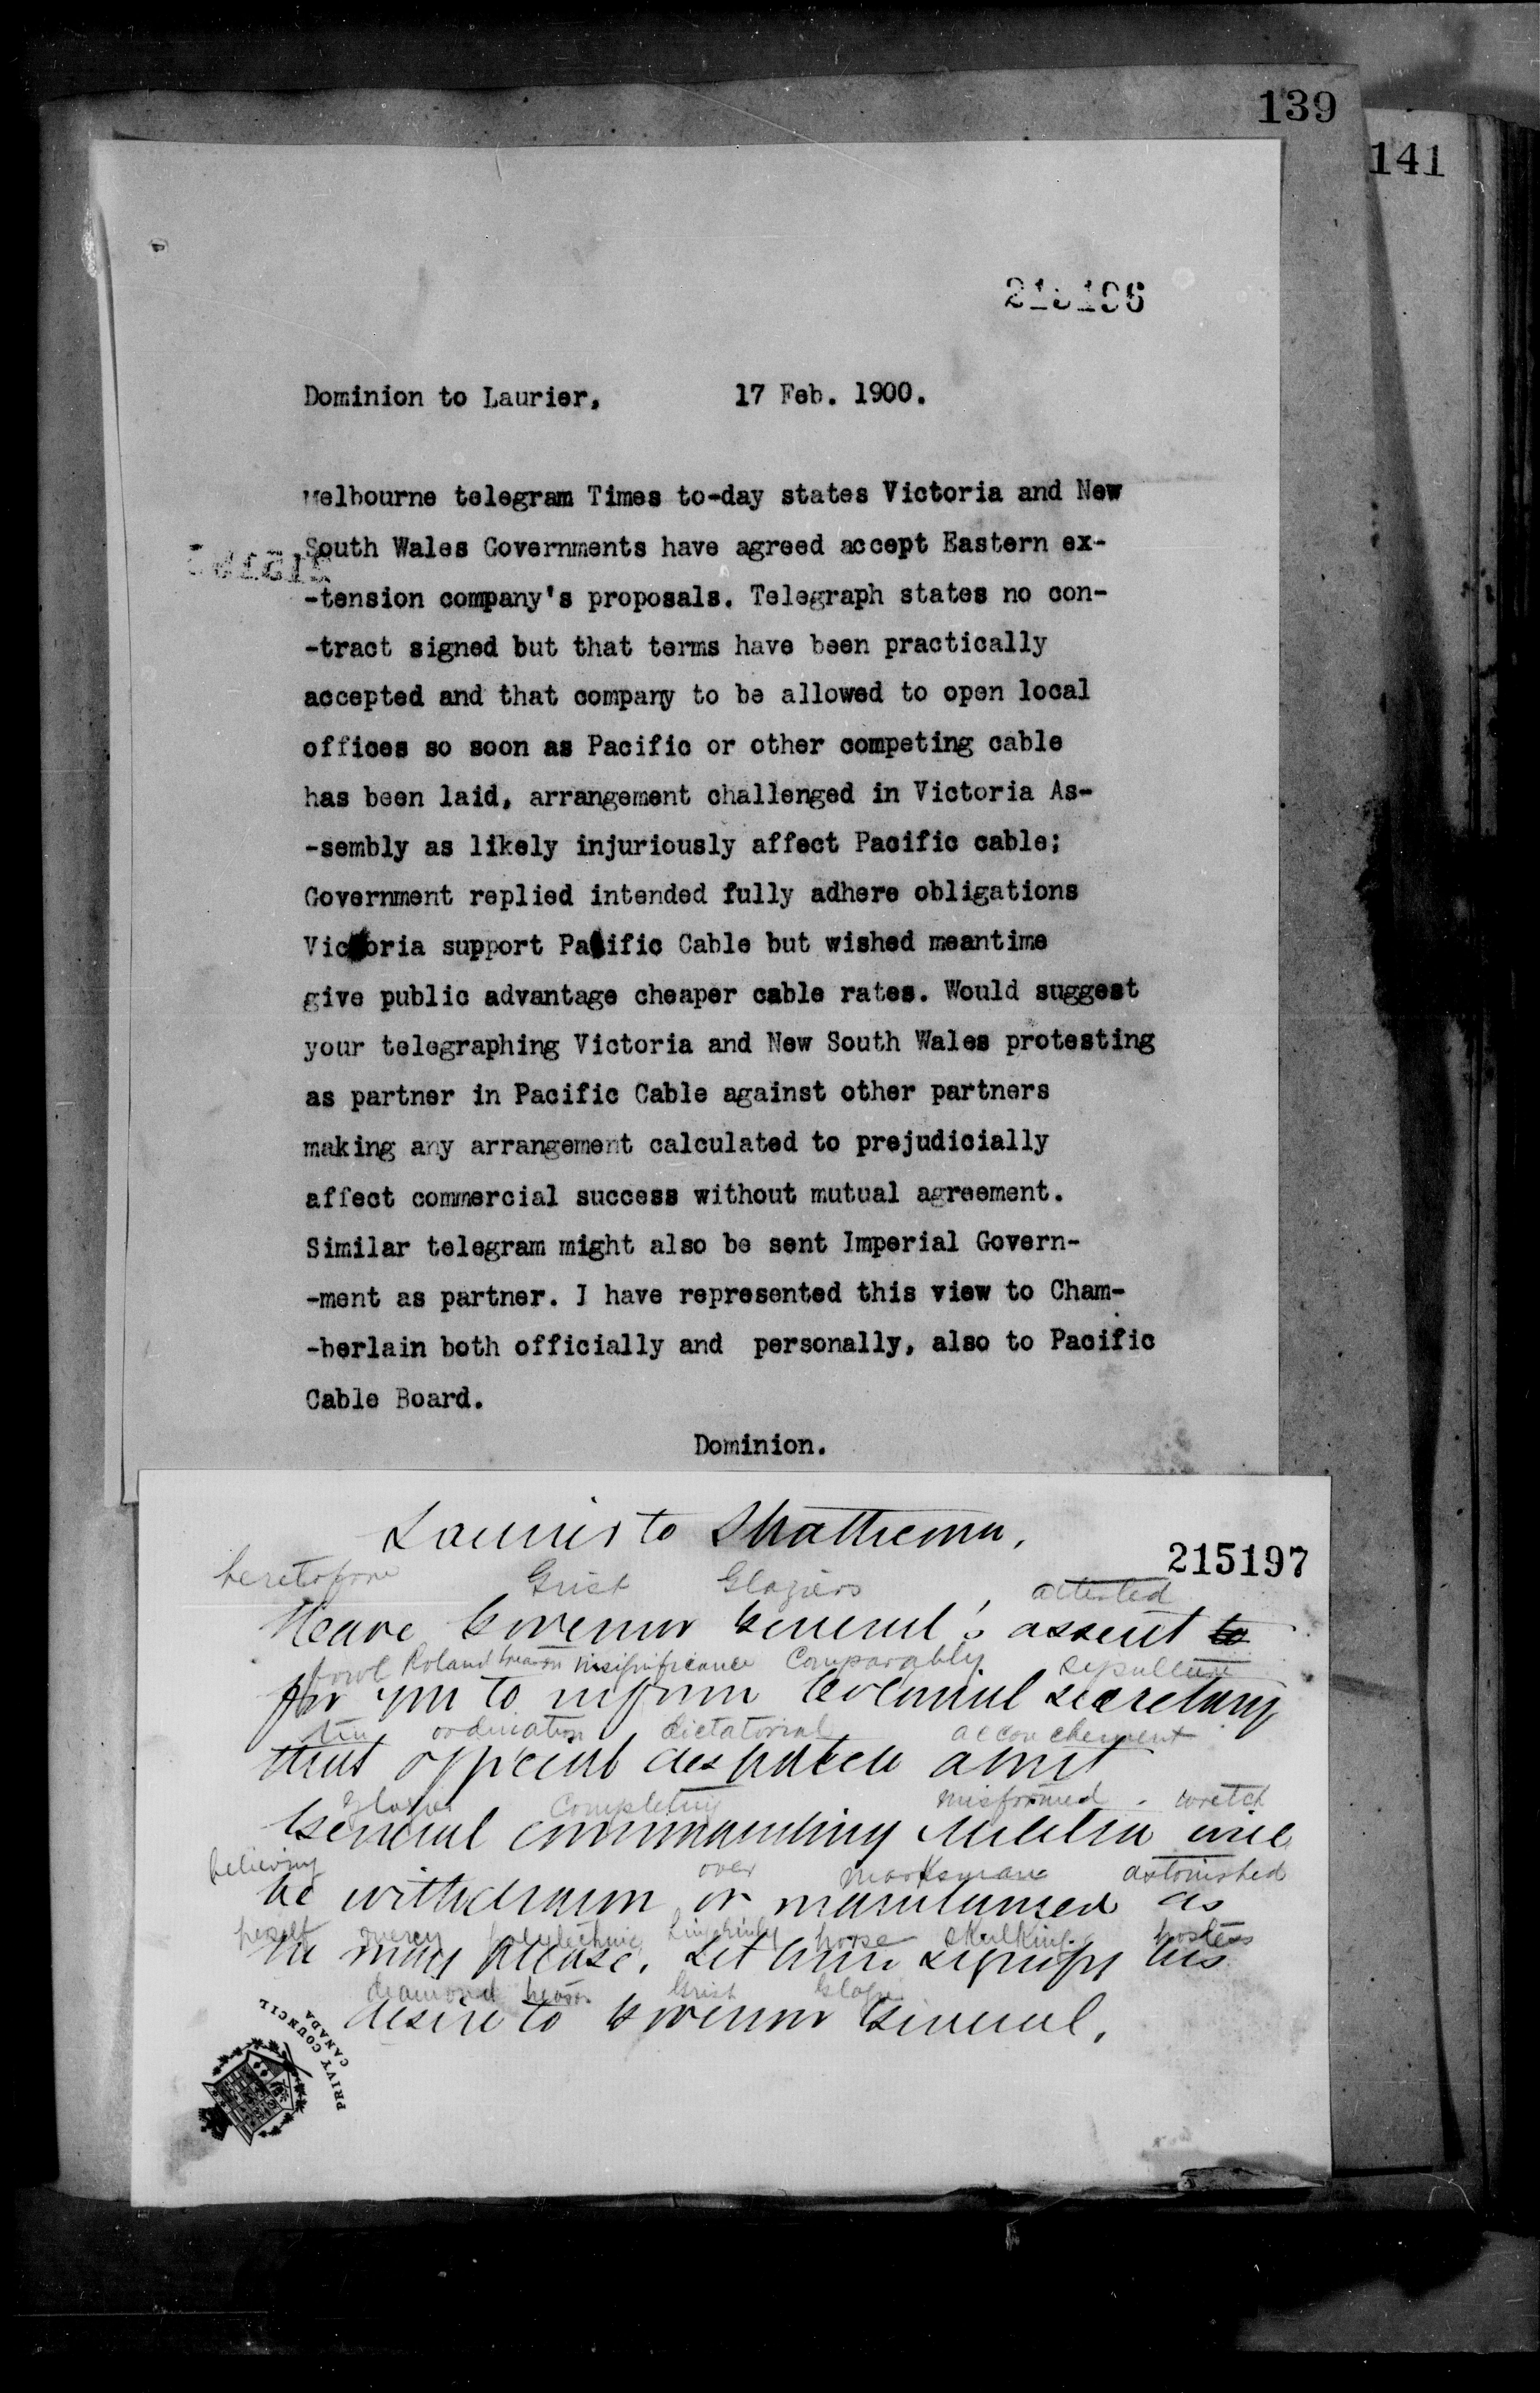 139
141
Dominion to Laurier, 17 Feb. 1900.
Melbourne telegram Times to-day states Victoria and New
South Wales Governments have agreed accept Eastern ex-
-tension company's proposals. Telegraph states no con-
-tract signed but that terms have been practically
accepted and that company to be allowed to open local
offices so soon as Pacific or other competing cable
has been laid, arrangement challenged in Victoria As-
-sembly as likely injuriously affect Pacific cable;
Government replied intended fully adhere obligations
Victoria support Pacific Cable but wished meantime
give public advantage cheaper cable rates. Would suggest
your telegraphing Victoria and New South Wales protesting
as partner in Pacific Cable against other partners
making any arrangement calculated to prejudicially
affect commercial success without mutual agreement.
Similar telegram might also be sent Imperial Govern-
-ment as partner. I have represented this view to Cham-
-berlain both officially and personally, also to Pacific
Cable Board.
Dominion.
Laurier to Strathcona.
215197
heretofore Grist Glaziers attested
Have Governor General's assent to
fowl Roland insignificance Comparably sepulture
for you to inform Colonial secretary
ordination dictatorial accouchement
that official despatch anent
Completing misformed wretch
General commanding Militia will
believing over marksman astonished
be withdrawn or maintained as
horse skulking hostess
he may please. Let him signify his
diamond Grist
desire to Governor General.
PRIVY COUNCIL
CANADA